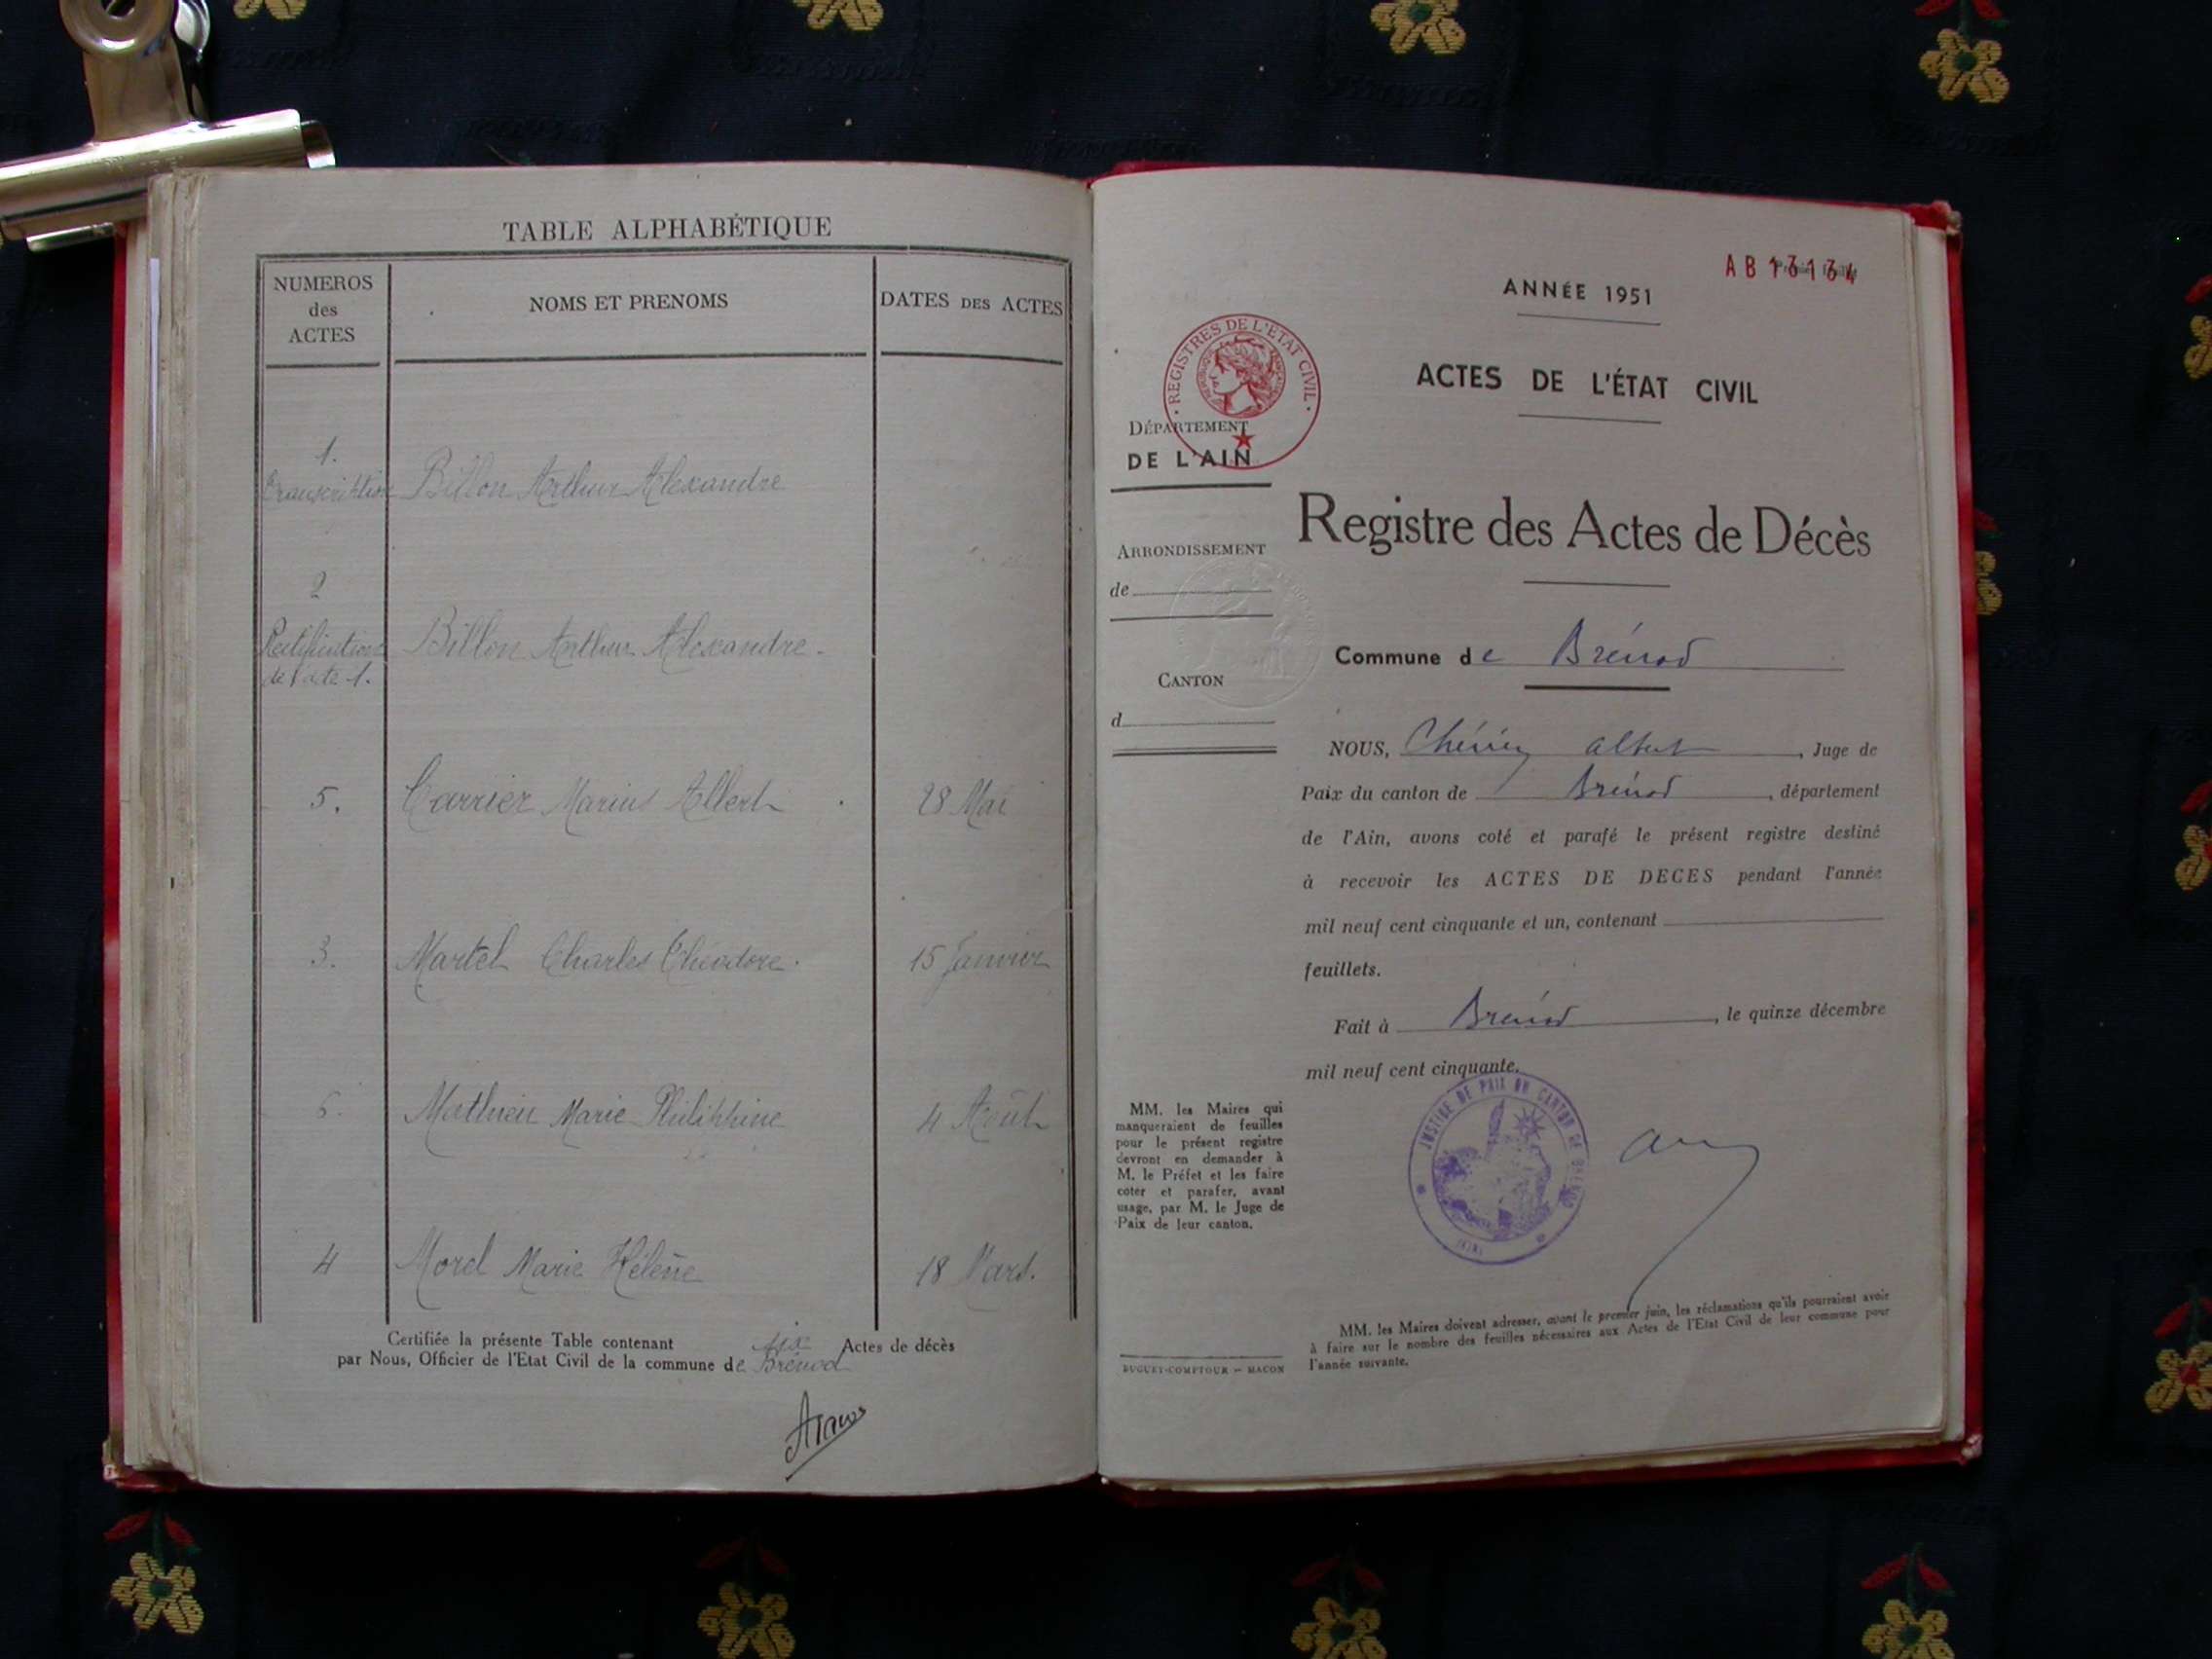 TABLE ALPHABÉTIQUE
NUMEROS des ACTES
NOMS ET PRENOMS
DATES DES ACTES
1. Transcription Billon Arthur Alexandre
2 Rectification de l'acte 1. Billon Arthur Alexandre.
5. Carrier Marius Albert 28 Mai
3. Martel Charles Théodore. 15 Janvier
6. Mathieu Marie Philippine 4 Août
4 Morel Marie Hélène 18 Mars.
Certifiée la présente Table contenant six Actes de décès
par Nous, Officier de l'Etat Civil de la commune de Brénod
AB
ANNÉE 1951
ACTES DE L'ÉTAT CIVIL
REGISTRES DE L'ÉTAT CIVIL
DÉPARTEMENT
DE L'AIN
Registre des Actes de Décès
ARRONDISSEMENT
de
Commune de Brénod
CANTON
d
NOUS, Albert, Juge de
Paix du canton de Brénod, département
de l'Ain, avons coté et parafé le présent registre destiné
à recevoir les ACTES DE DECES pendant l'année
mil neuf cent cinquante et un, contenant
feuillets.
Fait à Brénod, le quinze décembre
mil neuf cent cinquante.
JUSTICE DE PAIX DU CANTON DE BRENOD
(AIN)
MM. les Maires qui
manqueraient de feuilles
pour le présent registre
devront en demander à
M. le Préfet et les faire
coter et parafer, avant
usage, par M. le Juge de
Paix de leur canton.
MM. les Maires doivent adresser, avant le premier juin, les réclamations qu'ils pourraient avoir
à faire sur le nombre des feuilles nécessaires aux Actes de l'Etat Civil de leur commune pour
l'année suivante.
BUGUET-COMPTOUR - MACON